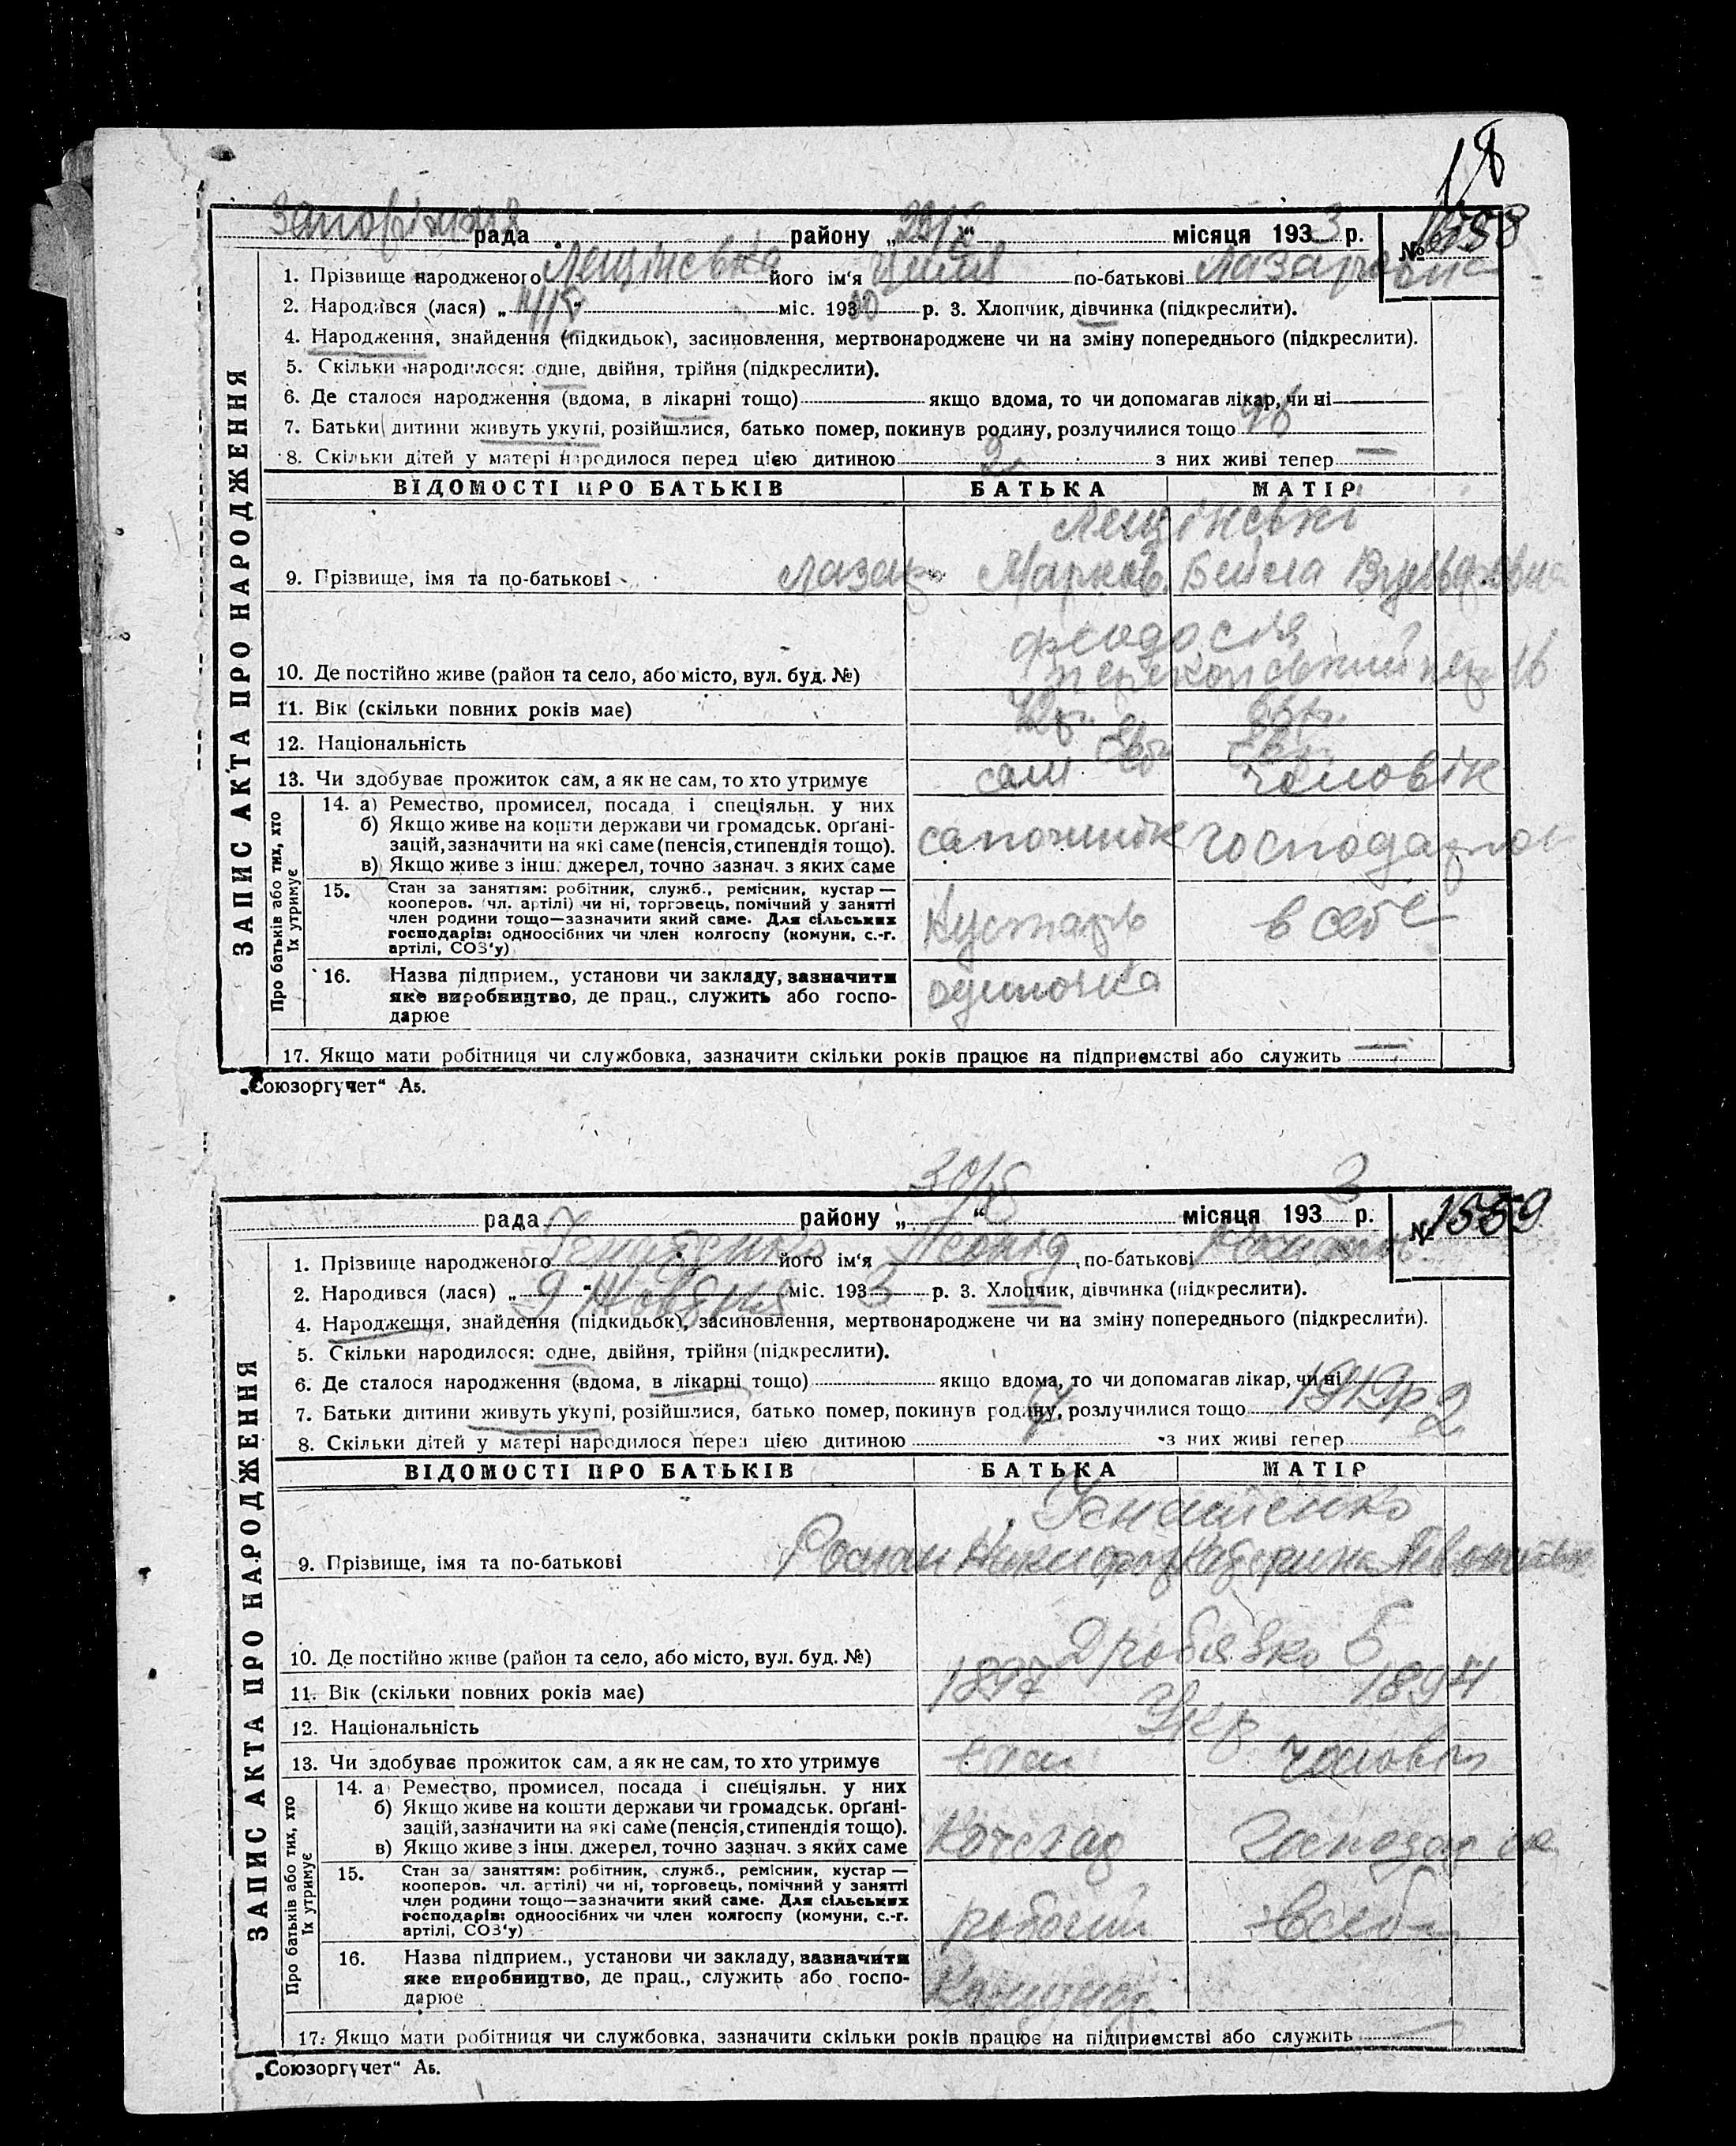 18
рада района „29/X“ місяця 1933 р. №1558
1. Прізвище народженого Лещінська його ім'я Циля по-батькові Лазарівна
2. Народився (лася) „ міс. 1930 р. 3. Хлопчик, дівчинка (підкреслити).
4. Народження, знайдення (підкидьок), засиновлення, мертвонароджене чи на зміну попереднього (підкреслити).
5. Скільки народилося: одне, двійня, трійня (підкреслити).
6. Де сталося народження (вдома, в лікарні тощо) якщо вдома, то чи допомагав лікар, чи ні
7. Батьки дитини живуть укупі, розійшлися, батько помер, покинув родину, розлучилися тощо
8. Скільки дітей у матері народилося перед цією дитиною 2 з них живі тепер —
ВІДОМОСТІ ПРО БАТЬКІВ БАТЬКА МАТІР
Лещінські
9. Прізвище, імя та по-батькові Лазар Марков. Бейла
Феодосія
10. Де постійно живе (район та село, або місто, вул. буд. №)
11. Вік (скільки повних років має)
12. Національність Євр. Євр.
13. Чи здобуває прожиток сам, а як не сам, то хто утримує сам чоловік
14. а) Ремество, промисел, посада і спеціяльн. у них
б) Якщо живе на кошти держави чи громадськ. орґані-
зацій, зазначити на які саме (пенсія, стипендія тощо).
в) Якщо живе з інш. джерел, точно зазнач. з яких саме
сапожник господарка
15. Стан за заняттям: робітник, служб., ремісник, кустар —
кооперов. (чл. артілі) чи ні, торговець, помічний у занятті
член родини тощо—зазначити який саме. Для сільських
господарів: одноосібних чи член колгоспу (комуни, с.-г.
артілі, СОЗ'у)
Кустарь в себе
16. Назва підприем., установи чи закладу, зазначити
яке виробництво, де прац., служить або госпо-
дарює
одиночка
17. Якщо мати робітниця чи службовка, зазначити скільки років працює на підприемстві або служить —
ЗАПИС АКТА ПРО НАРОДЖЕННЯ
Про батьків або тих, хто їх утримує
„Союзоргучет“ Аб.
рада району „30/X“ місяця 1933 р. №1559
1. Прізвище народженого Ігнатенко його ім'я Леонід по-батькові
2. Народився (лася) „9“ Жовтня міс. 1933 р. 3. Хлопчик, дівчинка (підкреслити).
4. Народження, знайдення (підкидьок), засиновлення, мертвонароджене чи на зміну попереднього (підкреслити).
5. Скільки народилося: одне, двійня, трійня (підкреслити).
6. Де сталося народження (вдома, в лікарні тощо) якщо вдома, то чи допомагав лікар, чи ні
7. Батьки дитини живуть укупі, розійшлися, батько помер, покинув родину, розлучилися тощо
8. Скільки дітей у матері народилося перед цією дитиною з них живі тепер 2
ВІДОМОСТІ ПРО БАТЬКІВ БАТЬКА МАТІР
Ігнатенко
9. Прізвище, імя та по-батькові Роман Никифор Катерина
10. Де постійно живе (район та село, або місто, вул. буд. №) Дробязко 5
11. Вік (скільки повних років має) 1897 1894
12. Національність Укр
13. Чи здобуває прожиток сам, а як не сам, то хто утримує сам чоловік
14. а) Ремество, промисел, посада і спеціяльн. у них
б) Якщо живе на кошти держави чи громадськ. орґані-
зацій, зазначити на які саме (пенсія, стипендія тощо).
в) Якщо живе з інш. джерел, точно зазнач. з яких саме
15. Стан за заняттям: робітник, служб., ремісник, кустар —
кооперов. чл. артілі) чи ні, торговець, помічний у занятті
член родини тощо—зазначити який саме. Для сільських
господарів: одноосібних чи член колгоспу (комуни, с.-г.
артілі, СОЗ'у)
робочий в себе
16. Назва підприем., установи чи закладу, зазначити
яке виробництво, де прац., служить або госпо-
дарює
17. Якщо мати робітниця чи службовка, зазначити скільки років працює на підприемстві або служить
ЗАПИС АКТА ПРО НАРОДЖЕННЯ
Про батьків або тих, хто їх утримує
„Союзоргучет“ Аб.